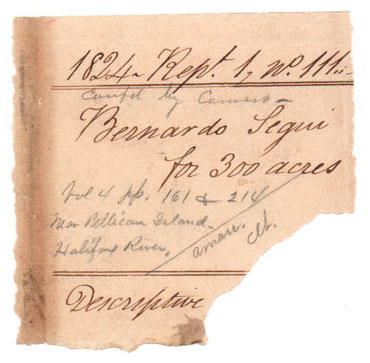 1824. Rept. 1, No. 111.
Conf'd by Commrs
Bernardo Segui
for 300 acres
Vol 4 pp. 161 & 214
Near Pellican Island
Halifax River.
Descriptive